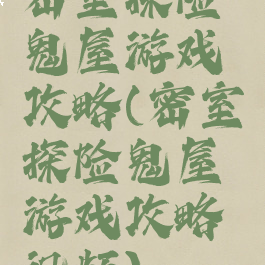 密室探险
鬼屋游戏
攻略(密室
探险鬼屋
游戏攻略
视频)